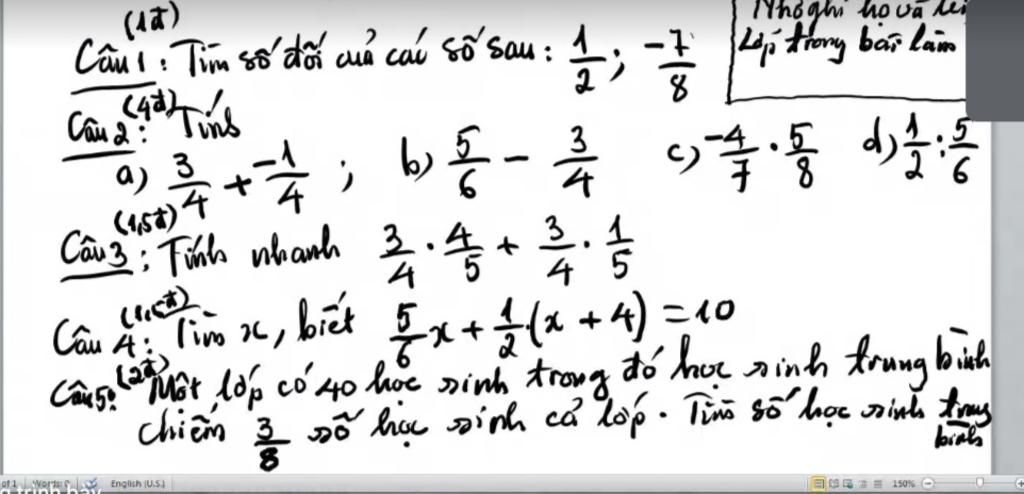 (1đ)
Câu 1: Tìm số đối của các số sau: 1/2; -7/8
Nhớ ghi họ và tên
Lớp trong bài làm
(4đ)
Câu 2: Tính
a) 3/4 + -1/4; b) 5/6 - 3/4 c) -4/7 . 5/8 d) 1/2 : 5/6
(1,5đ)
Câu 3: Tính nhanh 3/4 . 4/5 + 3/4 . 1/5
(1,5đ)
Câu 4: Tìm x, biết 5/6 x + 1/2 . (x + 4) = 10
(2đ)
Câu 5: Một lớp có 40 học sinh trong đó học sinh trung bình
chiếm 3/8 số học sinh cả lớp. Tìm số học sinh trung
bình
of 1 Words: 0 English (U.S.) 150%
g trình bày